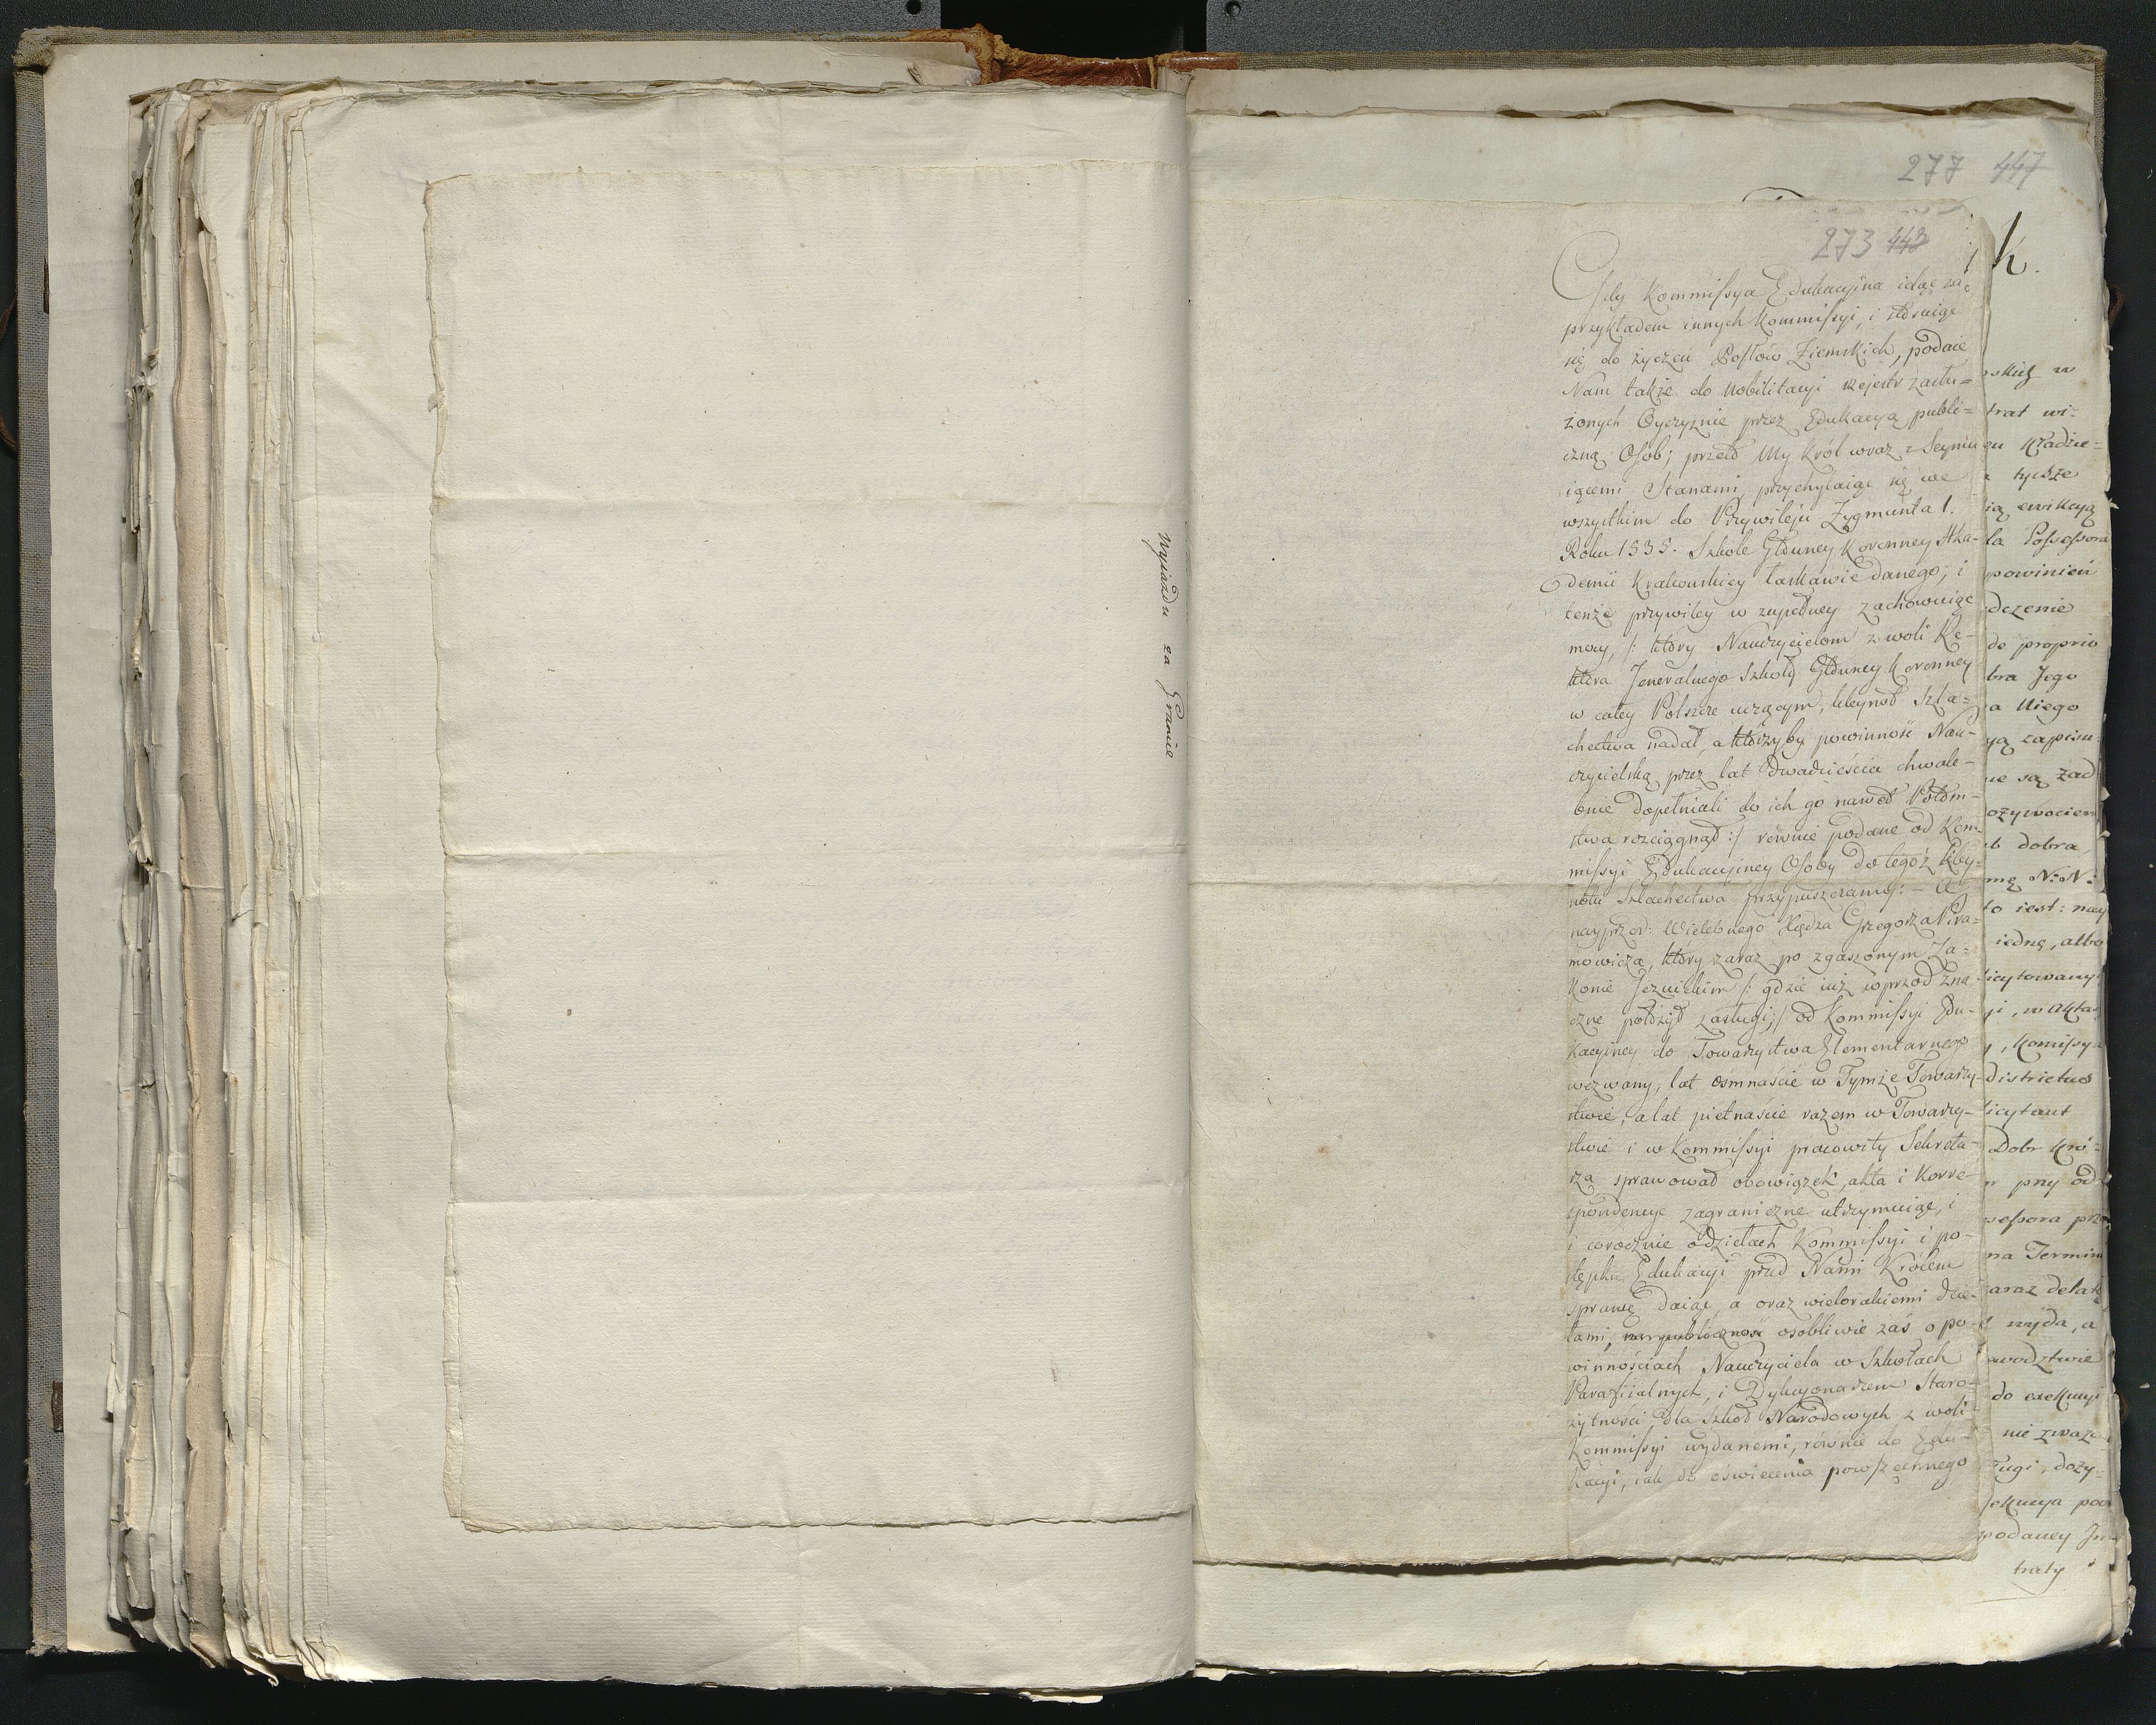 Wyjazdu za Granice
277 447
273 443
k.
Gdy Kommissya Edukacyina idąc za
przykładem innych Kommissyi, i stosuiąc
się do życzeń Posłów Ziemskich, podaie
Nam także do Nobilitacyi rejestr zasłu=
żonych Oyczyznie przez Edukacyą publi=
czną Osób; przeto My Król wraz z Seymu
iącemi Stanami, przychylaiąc się we
wszystkim do Przywileju Zygmunta 1.
Roku 1535. Szkole Głównej Koronney Aka-
demii Krakowskiey łaskawie danego; i
tenże przywiley w zupełney zachowuiąc
mocy, /: który Nauczycielom z woli Re-
ktora Jeneralnego Szkoły Główney Koronney
w całey Polszcze uczącym, kleynot Szla-
chectwa nadał, a którzyby powinność Nau-
czycielską przez lat dwadzieścia chwale-
bnie dopełniali do ich go nawet Potom-
stwa rozciągnął :/ równie podane od Kom-
missyi Edukacyiney Osoby do tegoż kley-
notu Szlachectwa przypuszczamy: – A
nayprzod: Wielebnego Xiędza Grzegorza Pira-
mowicza, który zaraz po zgaszonym Za-
konie Jezuickim /: gdzie iuż wprzod zna
czne położył zasługi; :/ od Kommissyi Edu-
kacyiney do Towarzystwa Elementarnego
wezwany, lat ośmnaście w Tymże Towarzy-
stwie, a lat piętnaście razem w Towarzy-
stwie i w Kommissyi pracowity Sekreta-
rza sprawował obowiązek, akta i Korre-
spondencye zagraniczne utrzymuiąc, i
i corocznie o dziełach Kommissyi i po-
stępku Edukacyi przed Nami Królem
sprawę daiąc, a oraz wielorakiemi dzie-
łami, osobliwie zaś o po-
winnościach Nauczyciela w Szkołach
Parafiialnych, i Dykcyonarzem Staro-
żytności, dla Szkoł Narodowych z woli
Kommissyi wydanemi, równie do Edu-
kacyi, iak do oświecenia powszechnego
skiey w
trat wi=
en kładzie=
tysże
ią ewikcyą
la Possessora
powinien
dczenie
de proprio
bra Jego
a Niego
yą zapisu
ie są żad
ożywociem
b dobra
mę N:N:
to iest: nay
iedną, albo
licytowany
yi, w Aktach
y, Komissya
districtus
licytant
Dobr Kró=
pny od
sessora prze
na Termin
araz delatę
wyjda, a
wodztwie
do exekucyi
nie zważa
ługi, doży=
exekucya pod
podaney In=
traty